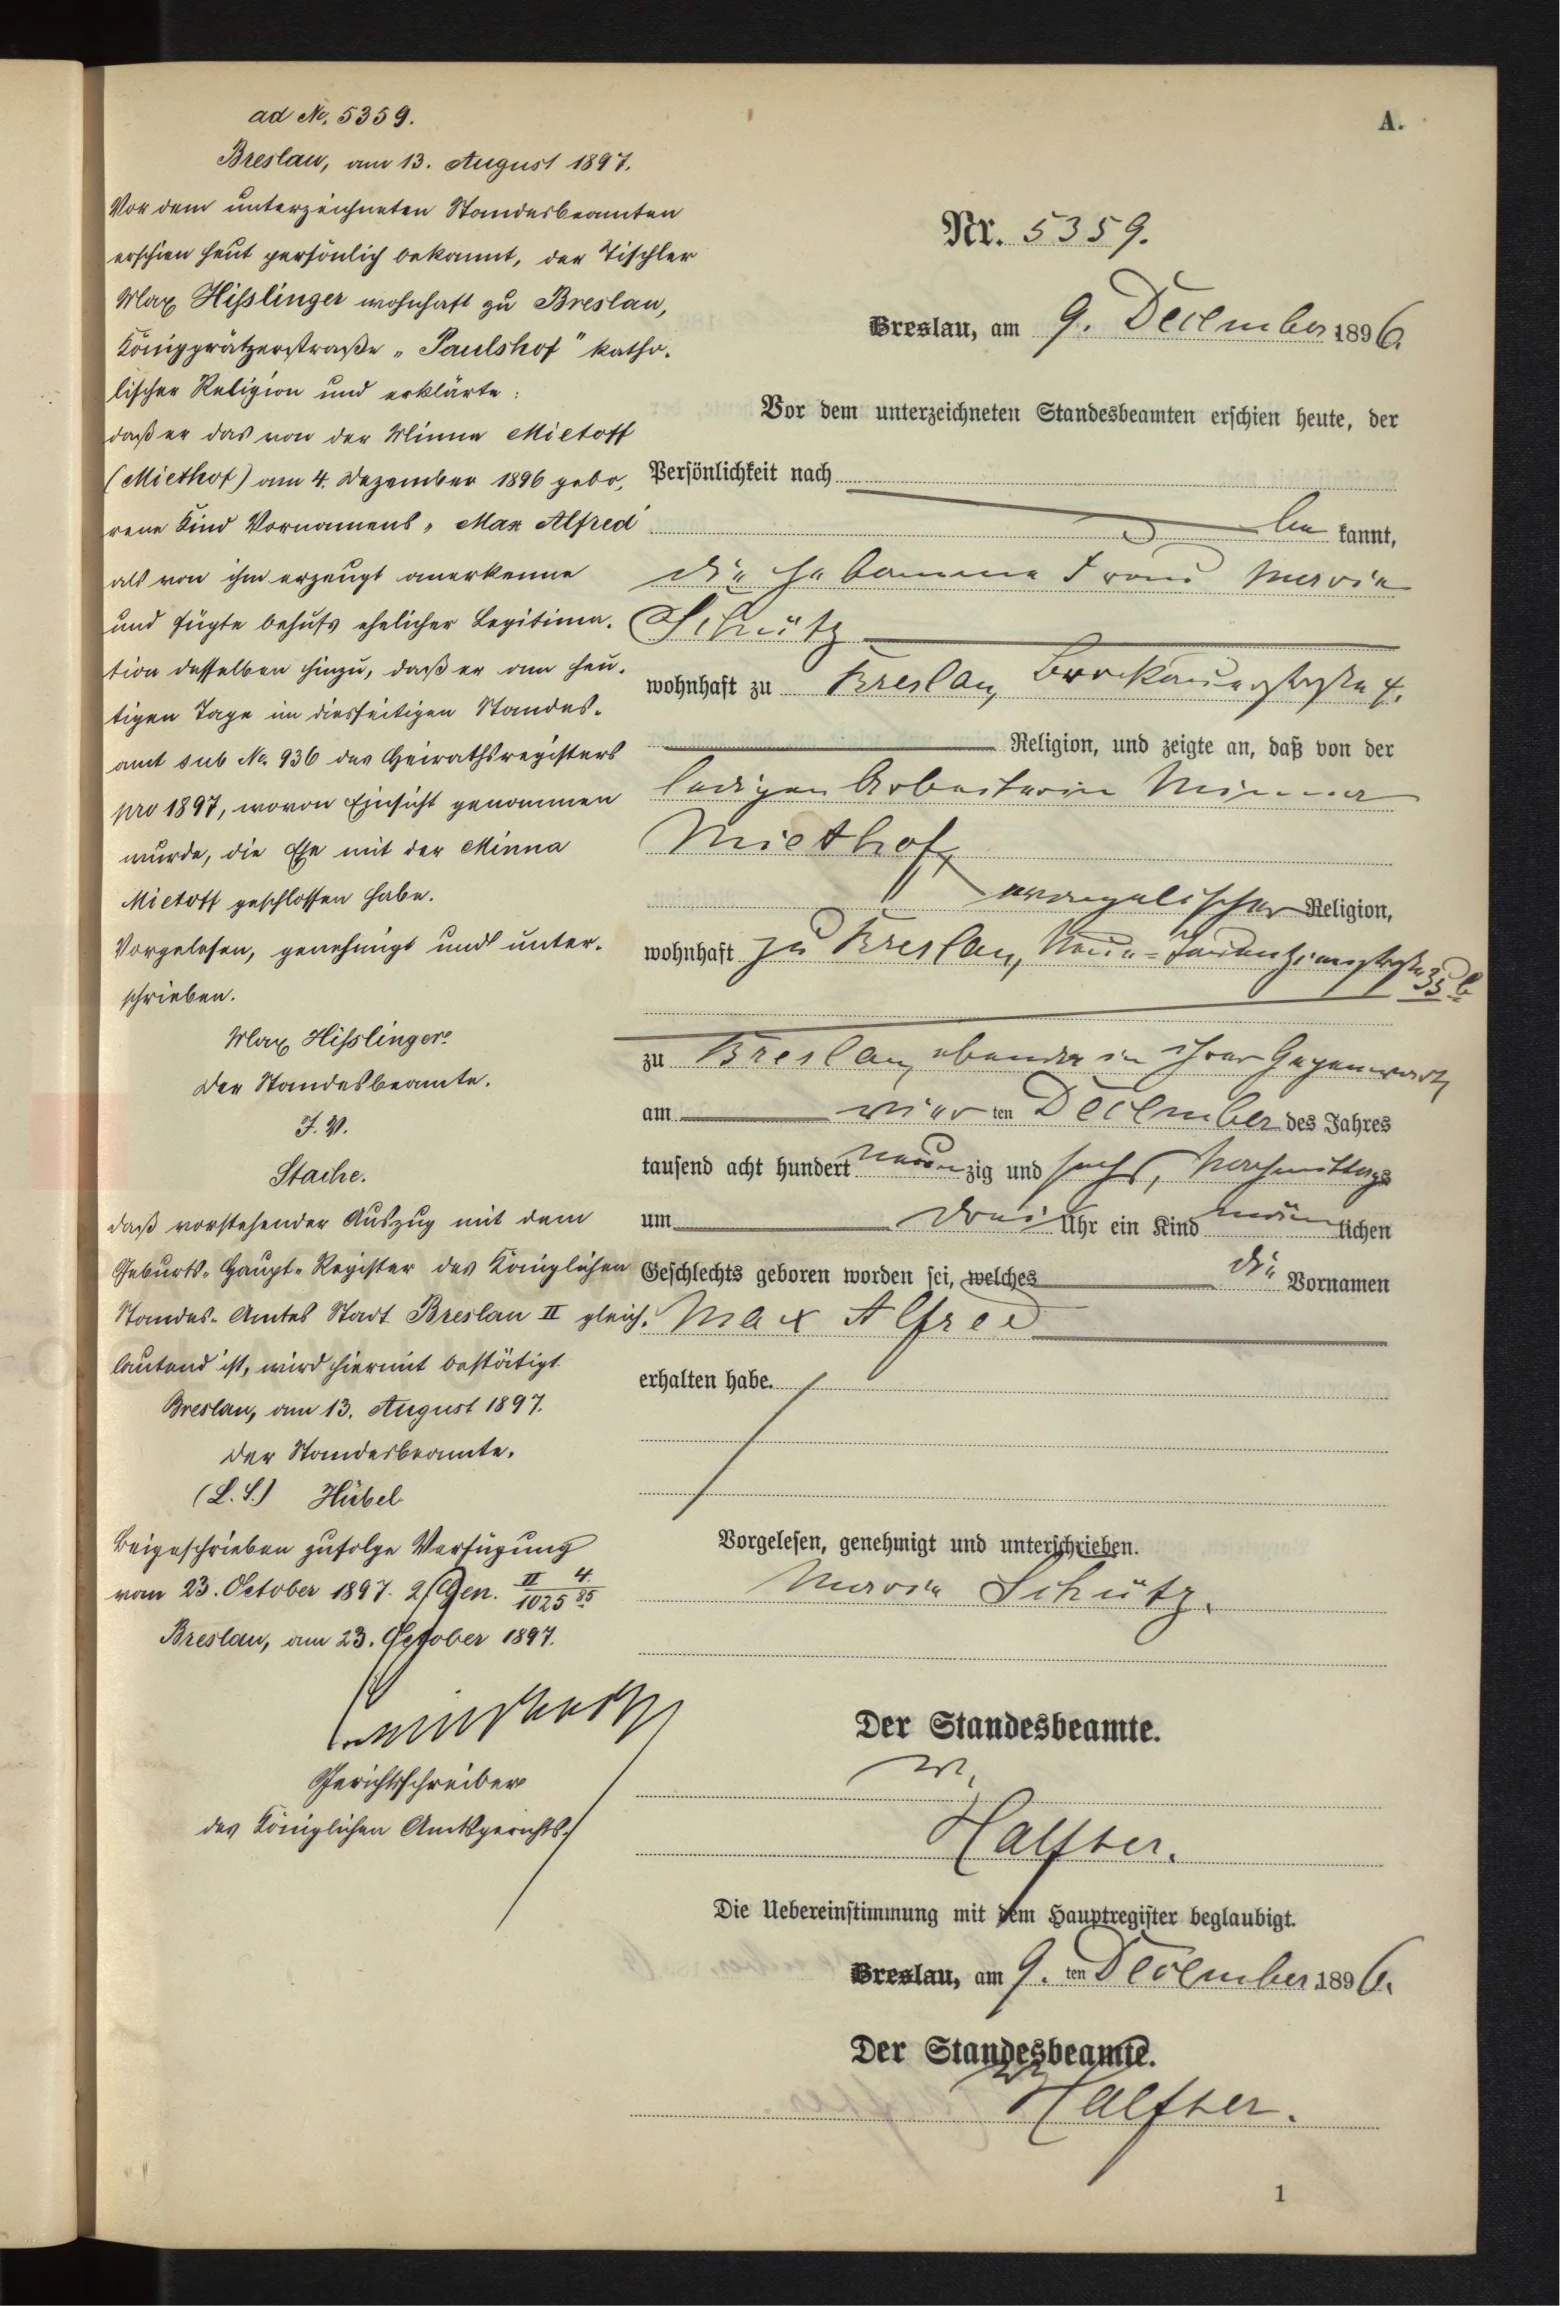 ad No. 5359.
Breslau, am 13. August 1897.
Vor dem unterzeichneten Standesbeamten
erschien heut persönlich bekannt, der Tischler
Max Hißlinger wohnhaft zu Breslau,
Königgrätzerstraße „Paulshof" katho-
lischer Religion und erklärte:
daß er das von der Minna Mietoff
(Miethof) am 4. Dezember 1896 gebo-
rene Kind Vornamens „Max Alfred"
als von ihm erzeugt anerkenne
und fügte behufs ehelicher Legitima-
tion desselben hinzu, daß er am heu-
tigen Tage im diesseitigen Standes-
amt sub No. 936 des Heirathsregisters
pro 1897, wovon Einsicht genommen
wurde, die Ehe mit der Minna
Mietoff geschlossen habe.
Vorgelesen, genehmigt und unter-
schrieben.
Max Hißlinger
Der Standesbeamte.
I. V.
Stache.
Daß vorstehender Auszug mit dem
Geburts-Haupt-Register des Königlichen
Standes-Amtes Stadt Breslau II gleich-
lautend ist, wird hiermit bestätigt
Breslau, am 13. August 1897.
Der Standesbeamte.
(L. S.) Hübel
Beigeschrieben zufolge Verfügung
vom 23. October 1897. Gen. II 4. 1025 85
Breslau, am 23. October 1897.
Gerichtsschreiber
des Königlichen Amtsgerichts.
A.
Nr. 5359.
Breslau, am 9. December 1896.
Vor dem unterzeichneten Standesbeamten erschien heute, der
Persönlichkeit nach
be kannt,
die Hebamme Frau Maria
Schütz
wohnhaft zu Breslau, Brockauerstraße 4.
Religion, und zeigte an, daß von der
ledigen Arbeiterin Minna
Miethof,
evangelischer Religion,
wohnhaft zu Breslau, Neue-Tauentzienstraße 35 b
zu Breslau, ebenda in ihrer Gegenwart,
am vier ten December des Jahres
tausend acht hundert neun zig und sechs, Nachmittags
um drei Uhr ein Kind männ lichen
Geschlechts geboren worden sei, welches die Vornamen
Max Alfred
erhalten habe.
Vorgelesen, genehmigt und unterschrieben.
Maria Schütz.
Der Standesbeamte.
Halfter.
Die Uebereinstimmung mit dem Hauptregister beglaubigt.
Breslau, am 9. ten December 1896.
Der Standesbeamte.
Halfter.
1